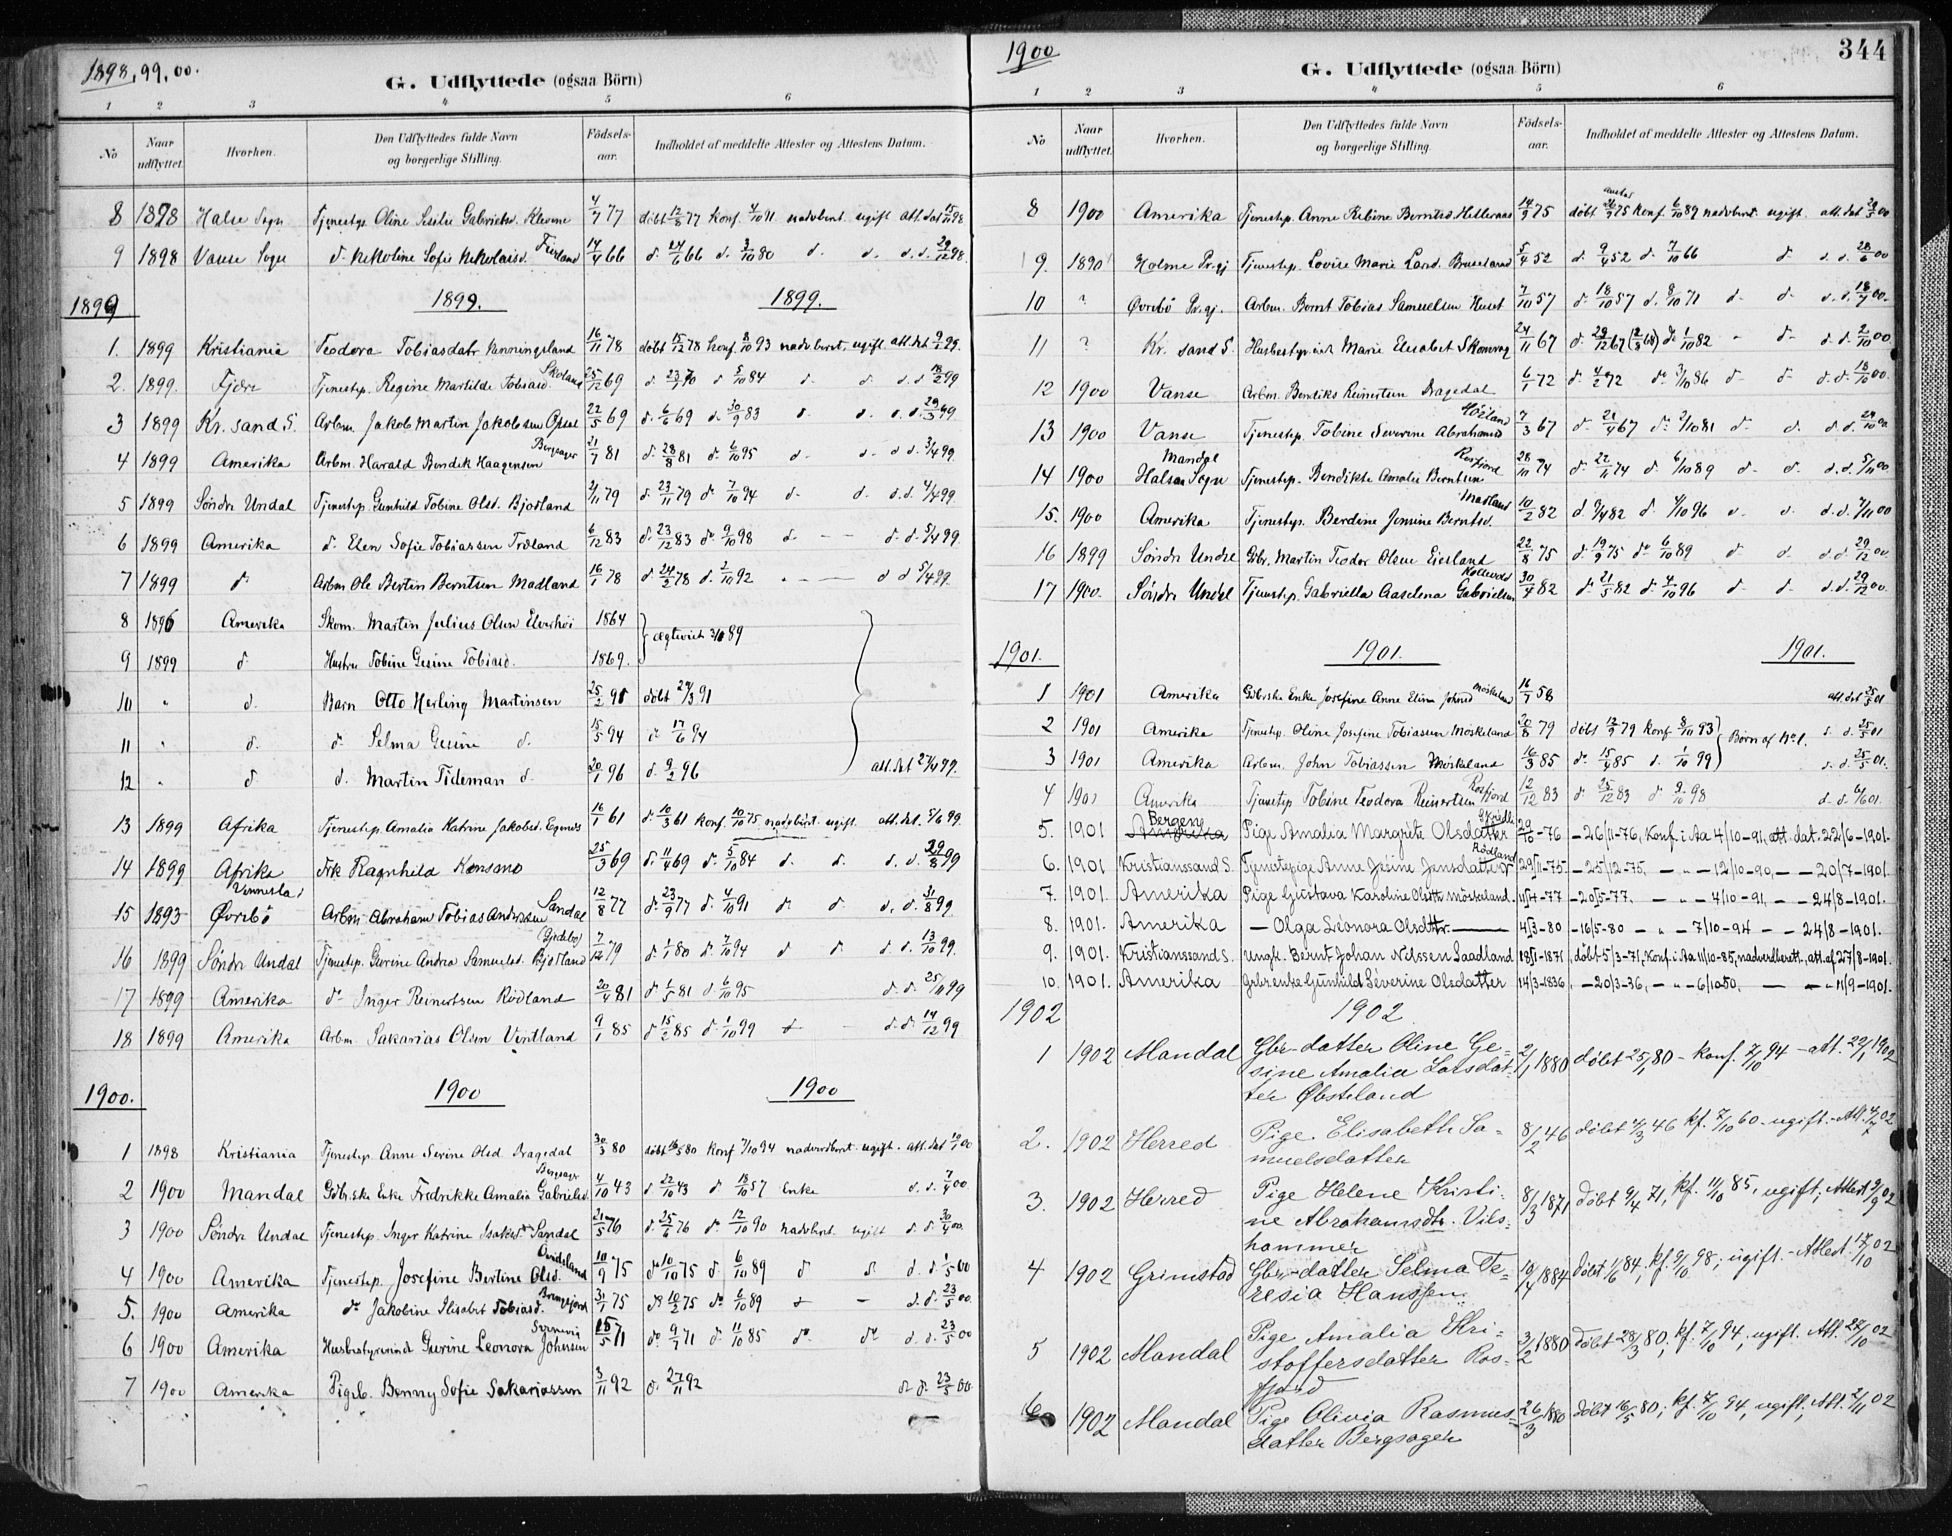 1898, 99, 00.
G. Udflyttede (ogsaa Börn)
1 2 3 4 5 6
No Naar udflyttet. Hvorhen. Den Udflyttedes fulde Navn og borgerlige Stilling. Födsels-aar. Indholdet af meddelte Attester og Attestens Datum.
8 1898 Halse Sogn Tjenestep. Oline Gabrielsd. Klevene 4/7 77 döbt 12/8 77 konf. nadvbret. ugift att. dat 98
9 1898 Vanse Sogn d. Nikoline Sofie Nikolaisd. 14/4 66 d. 24/6 66 d. 3/10 80 d. d. d. d. 29/12 98.
1899 1899. 1899.
1. 1899 Kristiania Teodora Tobiasdatr 16/11 78 döbt 15/12 78 konf. 8/10 93 nadvbret. ugift att. dat 99.
2. 1899. Fjære Tjenestep. Regine Martilde Tobiasd. Skoland 25/12 69 d. 23/1 70 d. 5/10 84 d. d. d. d. 99
3 1899 Kr. sand S. Arbm. Jakob Martin Jakobsen Opsal 22/5 69 d. 6/6 69 d. 30/9 83 d. d. d. d. 29/3 99.
4 1899 Amerika Arbm. Harald Bendik Haagensen Bergsager 21/7 81 d. 28/8 81 d. 6/10 95 d. d. d. d. 3/4 99.
5 1899 Söndre Undal Tjenestep. Gunhild Tobine Olsd. Bjodland 79 d. 23/11 79 d. 7/10 94 d. d. d. d. 4/4 99.
6 1899 Amerika d. Elen Sofie Tobiassen Træland 6/12 83 d. 23/12 83 d. 9/10 98 d. — d. d. 5/4 99.
7 1899 d. Arbm Ole Bertin Berntsen Madland 16/1 78 d. 24/2 78 d. 2/10 92 d d 5/4 99.
8 1896 Amerika Skom. Martin Julius Olsen 1864
9 1899 d. Hustru Tobine Gesine Tobiasd. 1869.
10 " d. Barn Otto Herling Martinsen 25/2 91 döbt 91
11 " d. d. Selma Gesine d. 15/5 94 d. 17/6 94
12 " d d. Martin Tideman d. 20/1 96 d. 9/2 96 att. dat 99.
13 1899 Afrika Tjenestep. Amalia Katrine Jakobsd. 16/1 61 d. 10/3 61 konf. 10/10 75 nadvbret. ugift. att. dat. 99.
14 1899 Afrika Frk Ragnhild Konsmo 25/3 69 d. 11/4 69 d. 5/10 84 d. d. d. d. 29/8 99
15 1893 Vennesla Øvrebö Arbm Abraham Tobias Anderssen Sandal 12/8 77 d. 23/9 77 d. 4/10 91 d. d. d. d. 31/8 99
16 1899 Söndre Undal Tjenestep. Gurine Andrea Samuelsd. Bjodland 7/12 79 d. 1/1 80 d. 7/10 94 d d. d d. 13/10 99.
17 1899 Amerika d. Inger Reinertsen Rödland 20/4 81 d. 81 d. 6/10 95 d. d. 25/10 99
18 1899 Amerika Arbm Sakarias Olsen Vintland 9/1 85 d. 15/2 85 d. 1/10 99 d. — d. d. 14/12 99
1900. 1900 1900
1 1898 Kristiania Tjenestep. Anne Serine Olsd. Dragedal 30/3 80 döbt 80 konf 7/10 94 nadverdbret. ugift. att. dat 00
2 1900 Mandal Gdbr.ske Enke Fredrikke Amalia Gabrielsd. Bergsager 4/10 43 d. 22/10 43 d. 18/10 57 Enke d. d. 7/4 00.
3 1900 Söndre Undal Tjenestep. Inger Katrine Isaksd. Sandal 21/5 76 d. 25/6 76 d. 12/10 90 nadvbret. ugift d. d. 30/4 00.
4 1900 Amerika Tjenestep. Josefine Bertine Olsd. 10/9 75 d. 10/10 75 d 6/10 89 d d. d. d. 1/5 00
5. 1900 Amerika d. Jakobine Elisabet Tobiasd. 31/1 75 d. 10/2 75 d. 6/10 89 d. — d. d. 23/5 00
6 1900 Amerika Husbestyrerinde Gurine Leonora Johnsen 71 d. 9/7 71 d. 11/10 85 d. d. d. d. 23/5 00
7 1900 Amerika Pigeb. Benny Sofie Sakariassen 3/11 92 d. 27/11 92 d. d. 23/5 00.
1900 344
G. Udflyttede (ogsaa Börn)
1 2 3 4 5 6
No Naar udflyttet. Hvorhen. Den Udflyttedes fulde Navn og borgerlige Stilling. Födsels-aar. Indholdet af meddelte Attester og Attestens Datum.
8 1900 Amerika Tjenestep. Anne Berntsd. 14/9 75 döbt 26/9 75 konf. 6/10 89 nadvbret. ugift. att. dat 00
9. 1890 Holme Pr.gj Tjenestep. Lovise Marie Larsd. Bruseland 5/4 52 d. 9/4 52 d. 7/10 66 d. d. d. 28/6 00
10 ? Øvrebö Pr.gj. Arbm. Bernt Tobias Samuelsen 7/10 57 d. 18/10 57 d. 8/10 71 d. d. d. d. 18/7 00.
11 ? Kr. sand S. Husbestyrerinde Marie Elisabet 24/11 67 d. 29/12 67 d. 1/10 82 d. d. d. 2/10 00
12 1900 Vanse Arbm. Bendiks Reinertsen Dragedal 6/1 72 d. 4/2 72 d. 86 d. d. d. d. 18/10 00.
13 1900 Vanse Tjenestep. Tobine Severine Abrahamsd 7/3 67 d. 21/4 67 d. 2/10 81 d. d. d. d. 29/10 00.
14 1900 Mandal Halsaa Sogn Tjenestep. Bendikte Amalie Berntsen Rosfjord 28/10 74 d. 22/11 74 d. 6/10 89 d. d. d. d. 5/11 00
15. 1900 Amerika Tjenestep. Berdine Jensine Berntsd. Madland 10/2 82 d 9/4 82 d. 4/10 96 d. d. d. d. 7/11 00
16 1899 Söndre Undal Gbr. Martin Teodor Olsen Eisland 22/8 75 d. 19/9 75 d. 6/10 89 d. d. d. d. 29/12 00.
17 1900 Söndre Undal Tjenestep. Gabriella Aaselena Gabrielsen 30/4 82 d. 21/5 82 d. 4/10 96 d. d. d. d. 29/12 00.
1901. 1901. 1901.
1 1901 Amerika Gdbrske Enke Josefine Anne Elina Johnsd Möskeland 16/7 58 att. dat 25/5 01
2 1901 Amerika Tjenestep. Oline Josefine Tobiassen Möskeland 20/8 79 döbt 79 konf 8/10 93 Börn af No 1. d. d. 25/5 01
3 1901 Amerika Arbm. John Tobiassen Möskeland 16/3 85 d. 15/4 85 d. 1/10 99 d. d. 25/5 01.
4 1901 Amerika Tjenestep Tobine Teodora Reinertsen Rosfjord 12/12 83 d. 25/12 83 d 9/10 98 d. d. 01.
5. 1901 Bergen Amerika Pige Amalia Margrete Olsdatter 29/10-76 -26/11-76, Konf. i Aa 4/10-91, att. dat. 22/6-1901.
6. 1901 Kristianssand S. Tjenestepige Anne Jensdatter Rödland 29/11-75 -25/12-75, — " — 12/10-90, — — 20/7-1901.
7. 1901 Amerika Pige Gustava Karoline Olsdtr Möskeland. 11/4-77 -20/5-77. — " — 4/10-91, — — 24/8-1901.
8. 1901. Amerika — Olga Léonora Olsdttr. — 4/3-80 -16/5-80 — " — 7/10-94 — — 24/8-1901.
9. 1901. Kristianssand S. Ungk. Bernt Johan Nilssen Laadland 18/1-1871, döbt 5/3-71, Konf. i Aa 11/10-85, nadverdberett, att. af 27/8-1901.
10. 1901. Amerika Gbrenke Gunhild Séverine Olsdatter 14/3-1836, -20/3-36, — " — 6/10 50, — " — 11/9-1901.
1902 1902
1 1902 Mandal Gbr-datter Oline Ge-
sine Amalia Larsdat-
ter Øbsteland 2/1 1880 döbt 25/1 80 - konf. 7/10 94 - att. 22/1 1902
2. 1902 Herred Pige Elisabeth Sa-
muelsdatter 8/2 46 döbt 4/3 46 kf. 7/10 60 - ugift. - Att. 02
3. 1902 Herred Pige Helene Kristi-
ne Abrahamsdtr. Vils-
hammer 8/3 1871 döbt 9/4 71, kf. 11/10 85, ugift, Attest 9/9 02
4 1902 Grimstad Gbr-datter Selma Te-
resia Hanssen 1884 Döbt 1/6 84, kf. 9/10 98; ugift. - Attest. 17/10 02
5 1902 Mandal Pige Amalia Kri-
stoffersdatter Ros-
fjord 3/2 1880 Döbt 28/3 80; kf. 7/10 94, ugift. Att. 02
6 1902 Mandal Pige Olivia Rasmus-
datter Bergsager 26/3 1880 Döbt 16/5 80; kf. 7/10 94, ugift, Att. 2/11 02